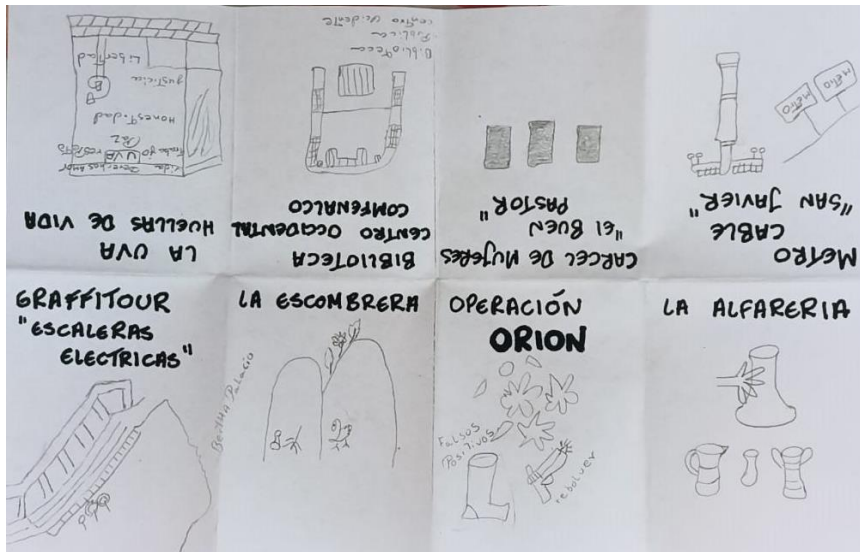 LA UVA
HUELLAS DE VIDA
UVA
Paz
Honestidad
justicia
Libertad
BIBLIOTECA
CENTRO OCCIDENTAL
COMFENALCO
Biblioteca
Publica
centro Ocidente
CARCEL DE MUJERES
"El BUEN
PASTOR"
METRO
CABLE
"SAN JAVIER"
METRO
METRO
GRAFFITOUR
"ESCALERAS
ELECTRICAS"
LA ESCOMBRERA
BertHA Palacio
OPERACIÓN
ORION
Falsos
Positivos
rebolver
LA ALFARERIA